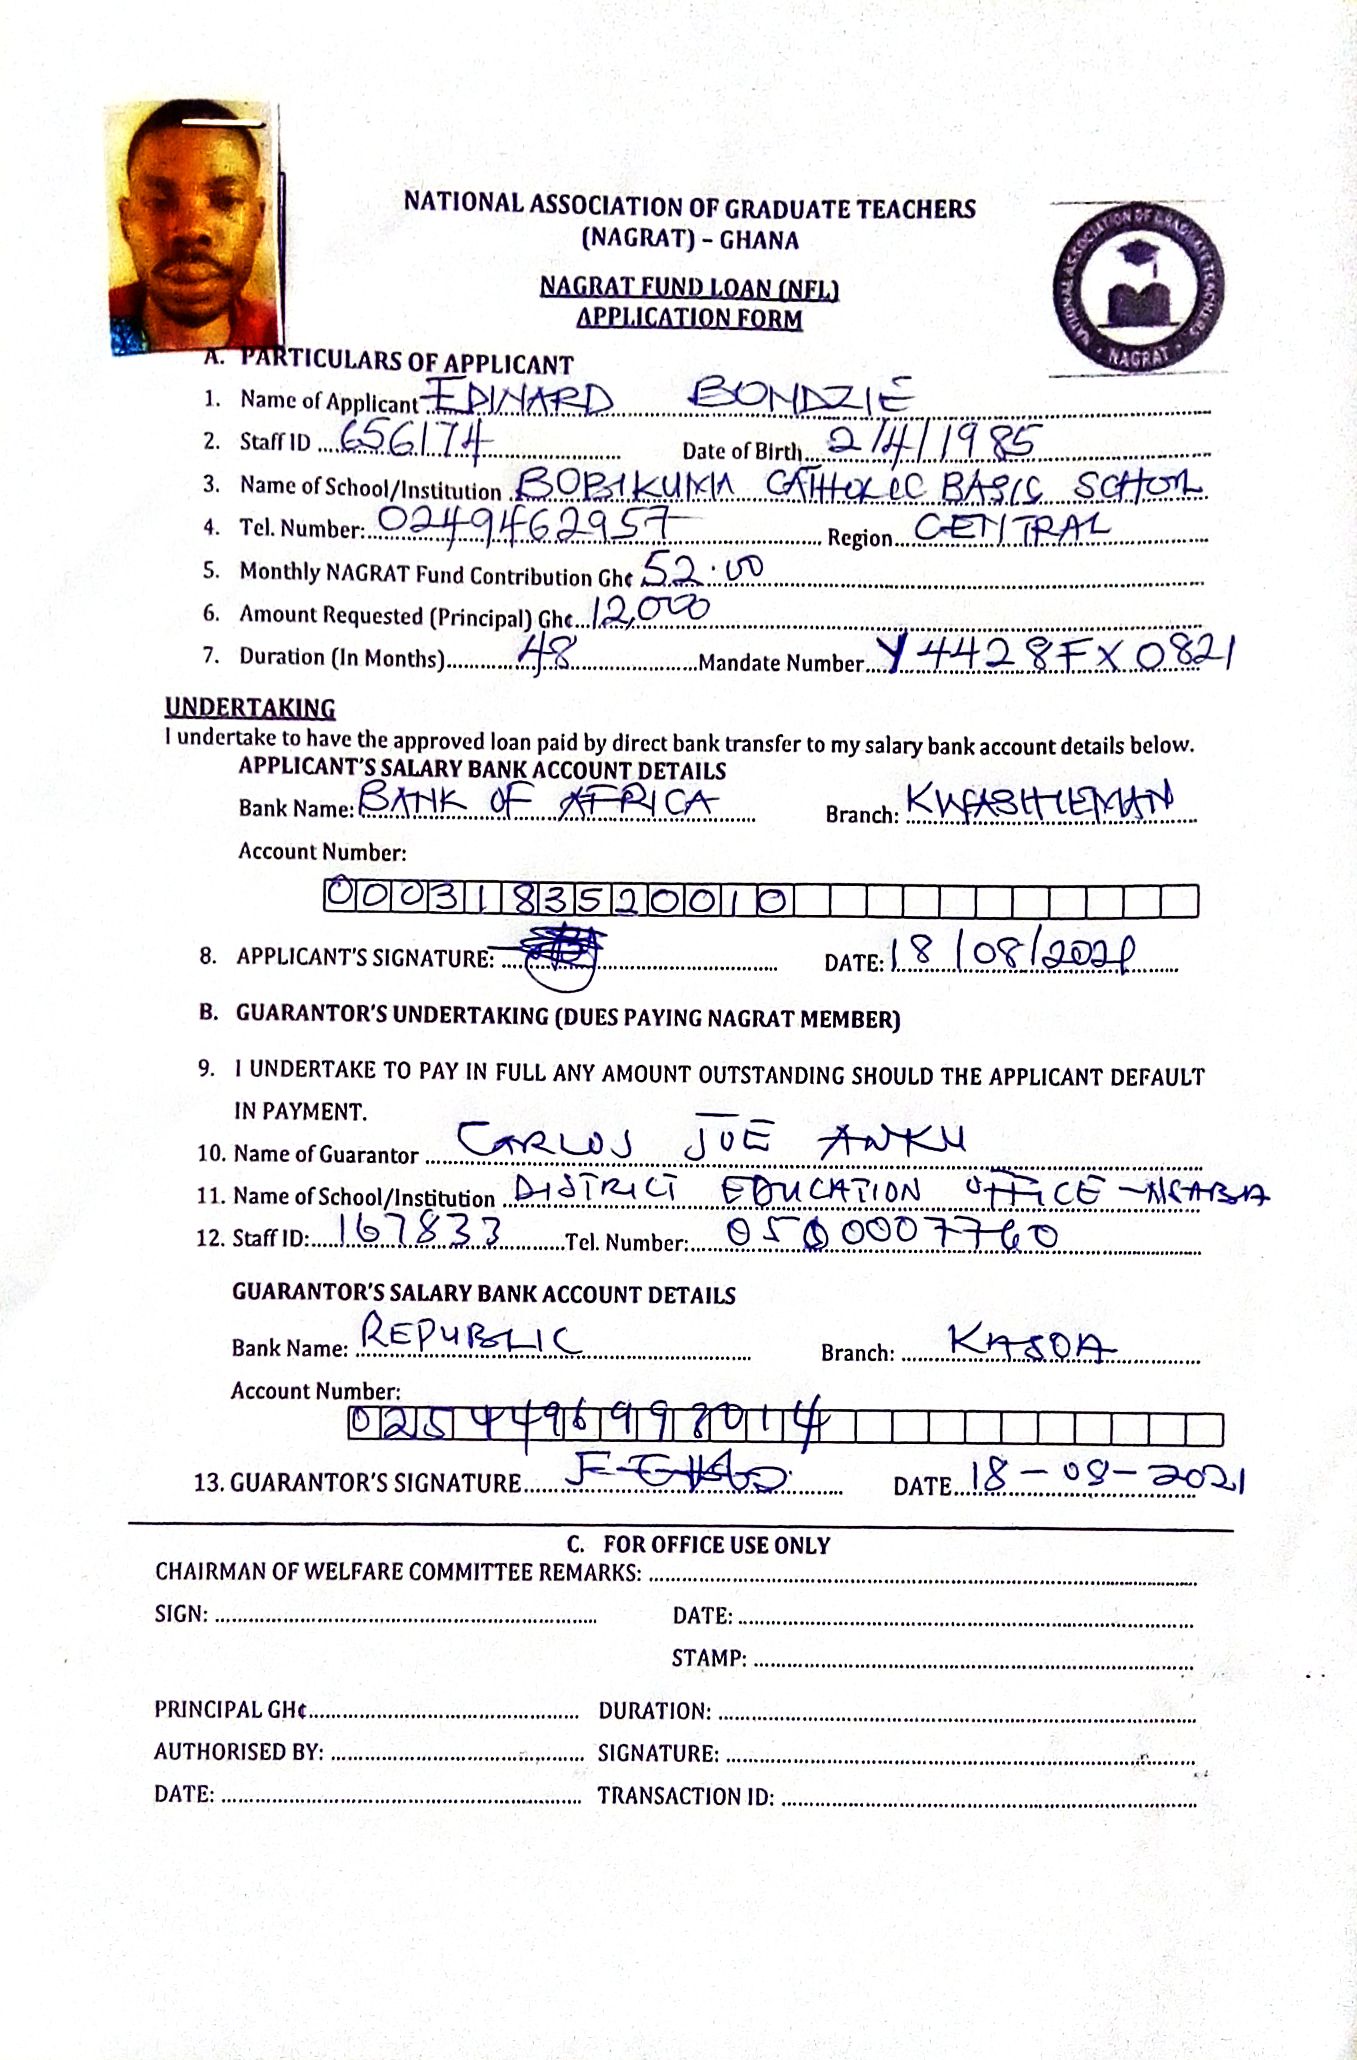 NATIONAL ASSOCIATION OF GRADUATE TEACHERS
(NAGRAT) – GHANA
NATIONAL ASSOCIATION OF GRADUATE TEACHERS
· NAGRAT ·
NAGRAT FUND LOAN (NFL)
APPLICATION FORM
A. PARTICULARS OF APPLICANT
1. Name of Applicant EDWARD BONDZIE
2. Staff ID 656174 Date of Birth 2/4/1985
3. Name of School/Institution BOBIKUMA CATHOLIC BASIC SCHOOL
4. Tel. Number: 0249462957 Region CENTRAL
5. Monthly NAGRAT Fund Contribution Gh¢ 52.00
6. Amount Requested (Principal) Gh¢ 12,000
7. Duration (In Months) 48 Mandate Number Y4428FX0821
UNDERTAKING
I undertake to have the approved loan paid by direct bank transfer to my salary bank account details below.
APPLICANT'S SALARY BANK ACCOUNT DETAILS
Bank Name: BANK OF AFRICA Branch: KWASHIEMAN
Account Number:
0003183520010
8. APPLICANT'S SIGNATURE: DATE: 18/08/2021
B. GUARANTOR'S UNDERTAKING (DUES PAYING NAGRAT MEMBER)
9. I UNDERTAKE TO PAY IN FULL ANY AMOUNT OUTSTANDING SHOULD THE APPLICANT DEFAULT
IN PAYMENT.
10. Name of Guarantor CARLOS JOE ANKU
11. Name of School/Institution DISTRICT EDUCATION OFFICE - NSABA
12. Staff ID: 167833 Tel. Number: 0500007760
GUARANTOR'S SALARY BANK ACCOUNT DETAILS
Bank Name: REPUBLIC Branch: KASOA
Account Number:
0254496998014
13. GUARANTOR'S SIGNATURE DATE 18-08-2021
C. FOR OFFICE USE ONLY
CHAIRMAN OF WELFARE COMMITTEE REMARKS:
SIGN: DATE:
STAMP:
PRINCIPAL GH¢ DURATION:
AUTHORISED BY: SIGNATURE:
DATE: TRANSACTION ID: